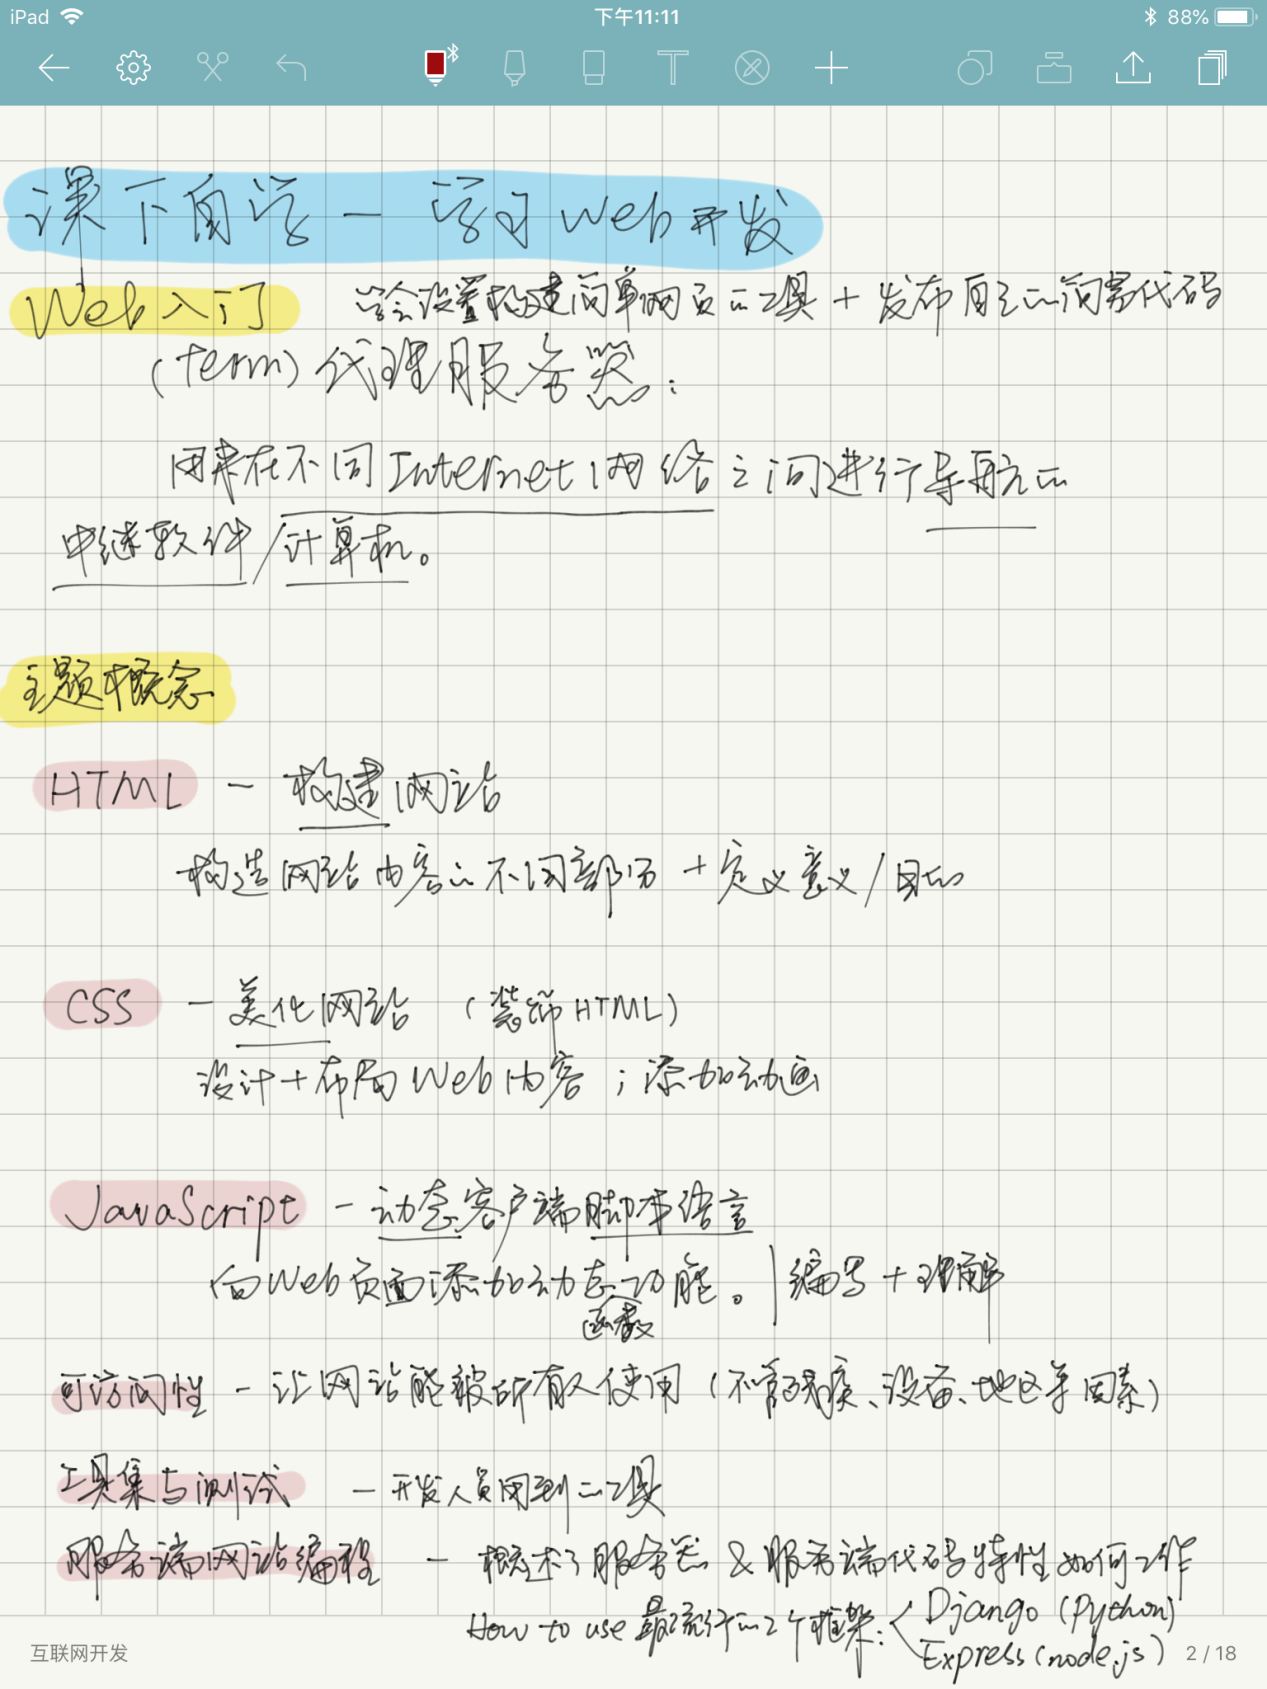 iPad 下午11:11 88%
课下自学 — 学习Web开发
Web入门 学会设置构建简单网页的工具 + 发布自己的简易代码
(term) 代理服务器:
用来在不同Internet网络之间进行导航的
中继软件/计算机。
主题概念
HTML — 构建网站
构造网站内容的不同部分 + 定义意义/目的
CSS — 美化网站 (装饰HTML)
设计+布局Web内容;添加动画
JavaScript — 动态客户端脚本语言
向Web页面添加动态功能。| 编写+理解
函数
可访问性 — 让网站能被所有人使用(不管残疾、设备、地区等因素)
工具集与测试 — 开发人员用到的工具
服务端网站编程 — 概述了服务器 & 服务端代码特性如何工作
How to use 最流行的2个框架: Django (Python)
Express (node.js)
互联网开发 2 / 18